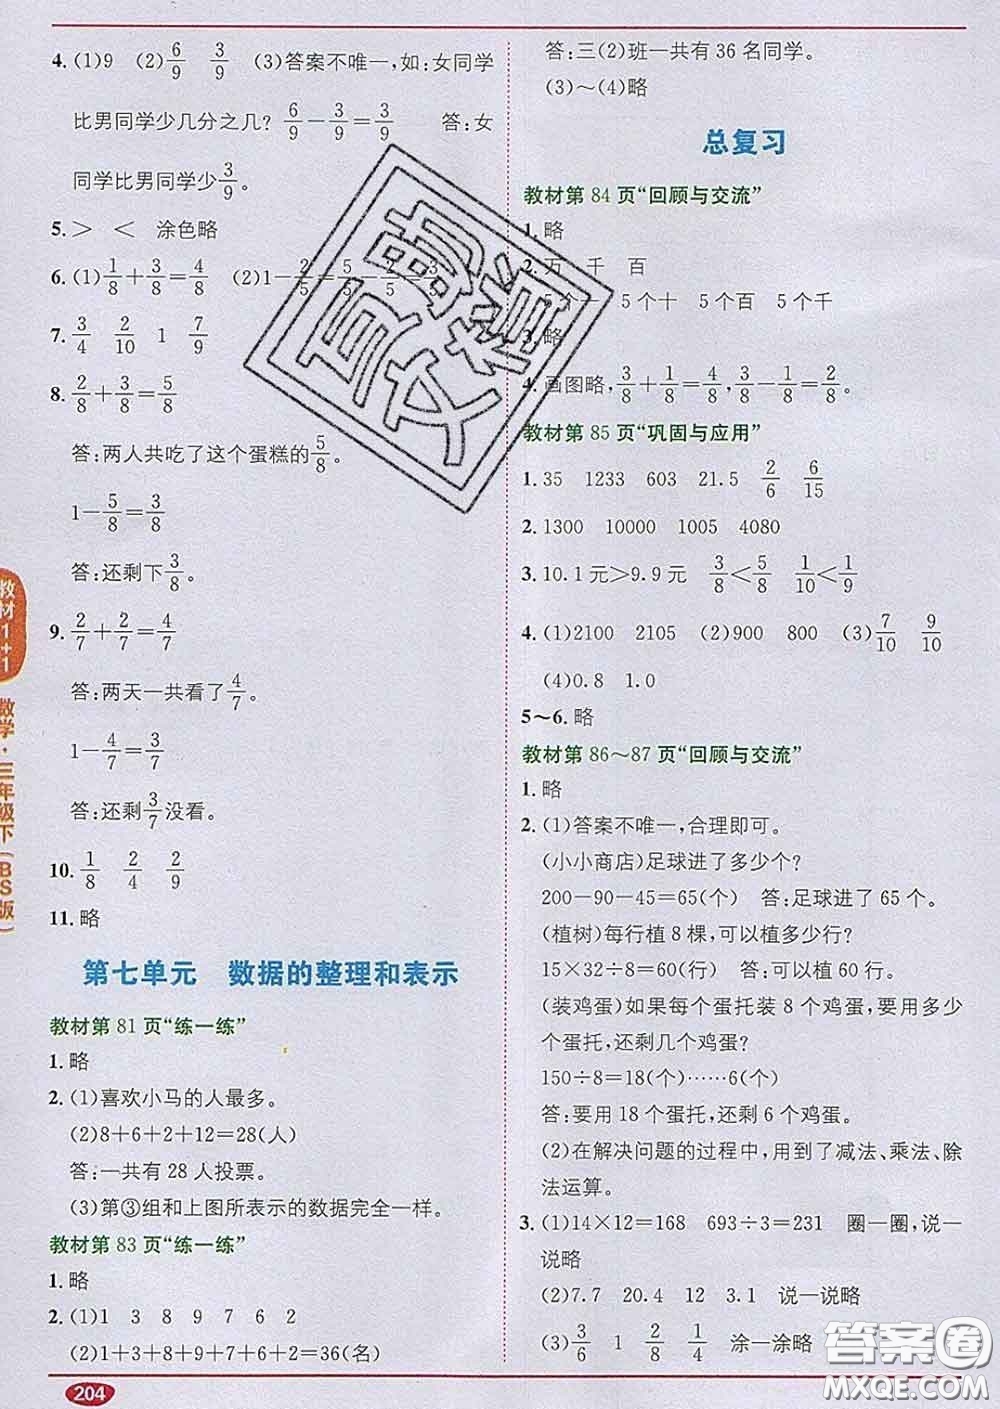 4. (1)9 (2)6/9 3/9 (3)答案不唯一,如:女同学
比男同学少几分之几? 6/9-3/9=3/9 答:女
同学比男同学少3/9。
5. > < 涂色略
6. (1)1/8+3/8=4/8 (2)1-2/5=5/5-2/5=3/5
7. 3/4 2/10 1 7/9
8. 2/8+3/8=5/8
答:两人共吃了这个蛋糕的5/8。
1-5/8=3/8
答:还剩下3/8。
9. 2/7+2/7=4/7
答:两天一共看了4/7。
1-4/7=3/7
答:还剩3/7没看。
10. 1/8 2/4 2/9
11. 略
第七单元 数据的整理和表示
教材第 81 页“练一练”
1. 略
2. (1)喜欢小马的人最多。
(2)8+6+2+12=28(人)
答:一共有 28 人投票。
(3)第③组和上图所表示的数据完全一样。
教材第 83 页“练一练”
1. 略
2. (1)1 3 8 9 7 6 2
(2)1+3+8+9+7+6+2=36(名)
答:三(2)班一共有 36 名同学。
(3)～(4)略
总复习
教材第 84 页“回顾与交流”
1. 略
2. 万 千 百
5个一 5个十 5个百 5个千
3. 略
4. 画图略,3/8+1/8=4/8,3/8-1/8=2/8。
教材第 85 页“巩固与应用”
1. 35 1233 603 21.5 2/6 6/15
2. 1300 10000 1005 4080
3. 10.1元>9.9元 3/8<5/8 1/10<1/9
4. (1)2100 2105 (2)900 800 (3)7/10 9/10
(4)0.8 1.0
5～6. 略
教材第 86～87 页“回顾与交流”
1. 略
2. (1)答案不唯一,合理即可。
(小小商店)足球进了多少个?
200-90-45=65(个) 答:足球进了 65 个。
(植树)每行植 8 棵,可以植多少行?
15×32÷8=60(行) 答:可以植 60 行。
(装鸡蛋)如果每个蛋托装 8 个鸡蛋,要用多少
个蛋托,还剩几个鸡蛋?
150÷8=18(个)……6(个)
答:要用 18 个蛋托,还剩 6 个鸡蛋。
(2)在解决问题的过程中,用到了减法、乘法、除
法运算。
3. (1)14×12=168 693÷3=231 圈一圈,说一
说略
(2)7.7 20.4 12 3.1 说一说略
(3)3/6 1 2/8 1/4 涂一涂略
教材1+1 数学·三年级下(BS版)
204
答案圈
MXQE.COM